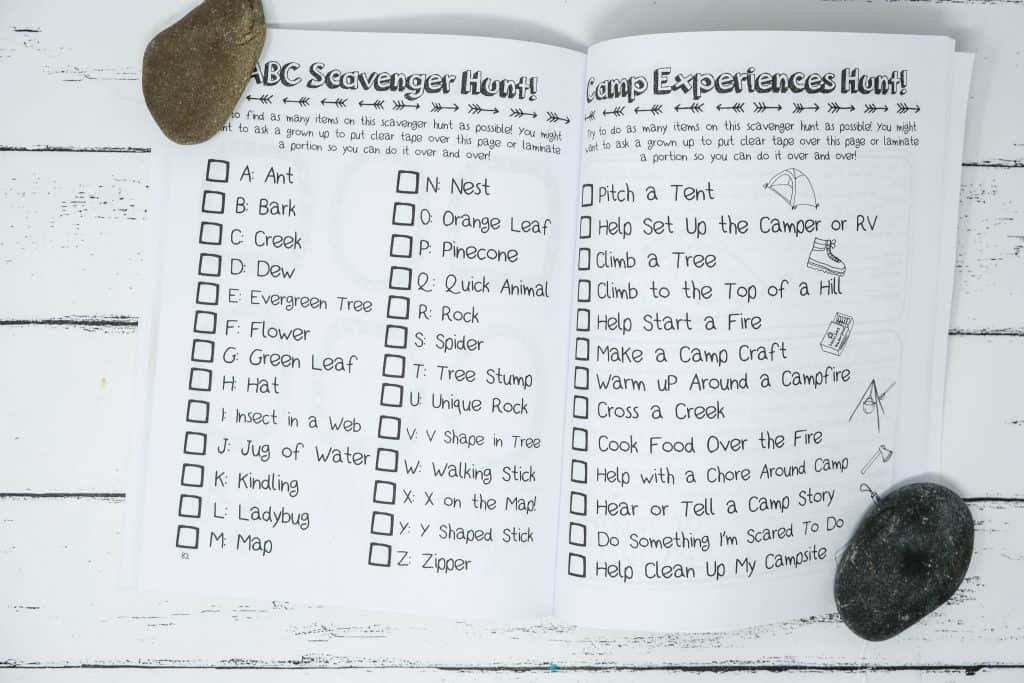 ABC Scavenger Hunt!
to find as many items on this scavenger hunt as possible! You might
to ask a grown up to put clear tape over this page or laminate
a portion so you can do it over and over!
A: Ant
B: Bark
C: Creek
D: Dew
E: Evergreen Tree
F: Flower
G: Green Leaf
H: Hat
I: Insect in a Web
J: Jug of Water
K: Kindling
L: Ladybug
M: Map
82
N: Nest
O: Orange Leaf
P: Pinecone
Q: Quick Animal
R: Rock
S: Spider
T: Tree Stump
U: Unique Rock
V: V Shape in Tree
W: Walking Stick
X: X on the Map!
Y: Y Shaped Stick
Z: Zipper
Camp Experiences Hunt!
Try to do as many items on this scavenger hunt as possible! You might
want to ask a grown up to put clear tape over this page or laminate
a portion so you can do it over and over!
Pitch a Tent
Help Set Up the Camper or RV
Climb a Tree
Climb to the Top of a Hill
Help Start a Fire
Make a Camp Craft
Warm uP Around a Campfire
Cross a Creek
Cook Food Over the Fire
Help with a Chore Around Camp
Hear or Tell a Camp Story
Do Something I'm Scared To Do
Help Clean Up My Campsite